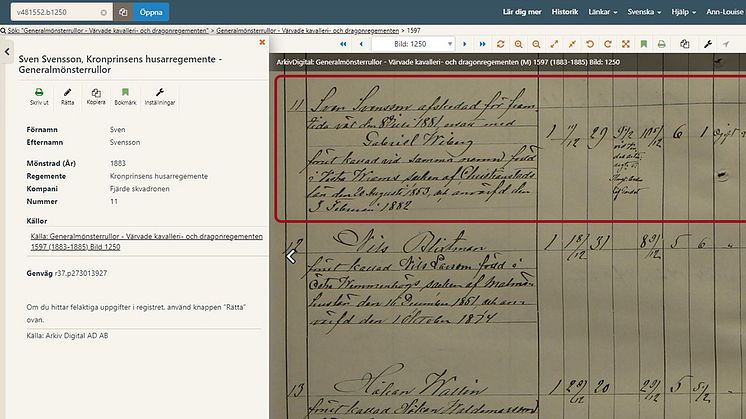 v481552.b1250
Öppna
Lär dig mer Historik Länkar Svenska Hjälp Ann-Louise
Sök: "Generalmönsterrullor - Värvade kavalleri- och dragonregementen" > Generalmönsterrullor - Värvade kavalleri- och dragonregementen > 1597
Bild: 1250
ArkivDigital: Generalmönsterrullor - Värvade kavalleri- och dragonregementen (M) 1597 (1883-1885) Bild: 1250
Sven Svensson, Kronprinsens husarregemente -
Generalmönsterrullor
Skriv ut Rätta Kopiera Bokmärk Inställningar
Förnamn Sven
Efternamn Svensson
Mönstrad (År) 1883
Regemente Kronprinsens husarregemente
Kompani Fjärde skvadronen
Nummer 11
Källor
Källa: Generalmönsterrullor - Värvade kavalleri- och dragonregementen
1597 (1883-1885) Bild 1250
Genväg r37.p273013927
Om du hittar felaktiga uppgifter i registret, använd knappen "Rätta"
ovan.
Källa: Arkiv Digital AD AB
11 Sven Svensson afskedad för fram-
tida vät den 8 Juli 1881 ersatt med
Gabriel Wiberg
förut kallad vid samma namn född
i socken af Christianstads
län den 20 Augusti 1853, anvärfd den
3 Februari 1882
1 29 6 1 gift
12 Nils Blixtman
förut kallad Nils Persson född i
Östra Wemmenhögs socken af Malmö-
hus län den 16 December 1851 och an-
värfd den 1 October 1874
1 18/12 31 5 6 "
13 Håkan Wallin
förut kallad Håkan
1 20 29/12 5